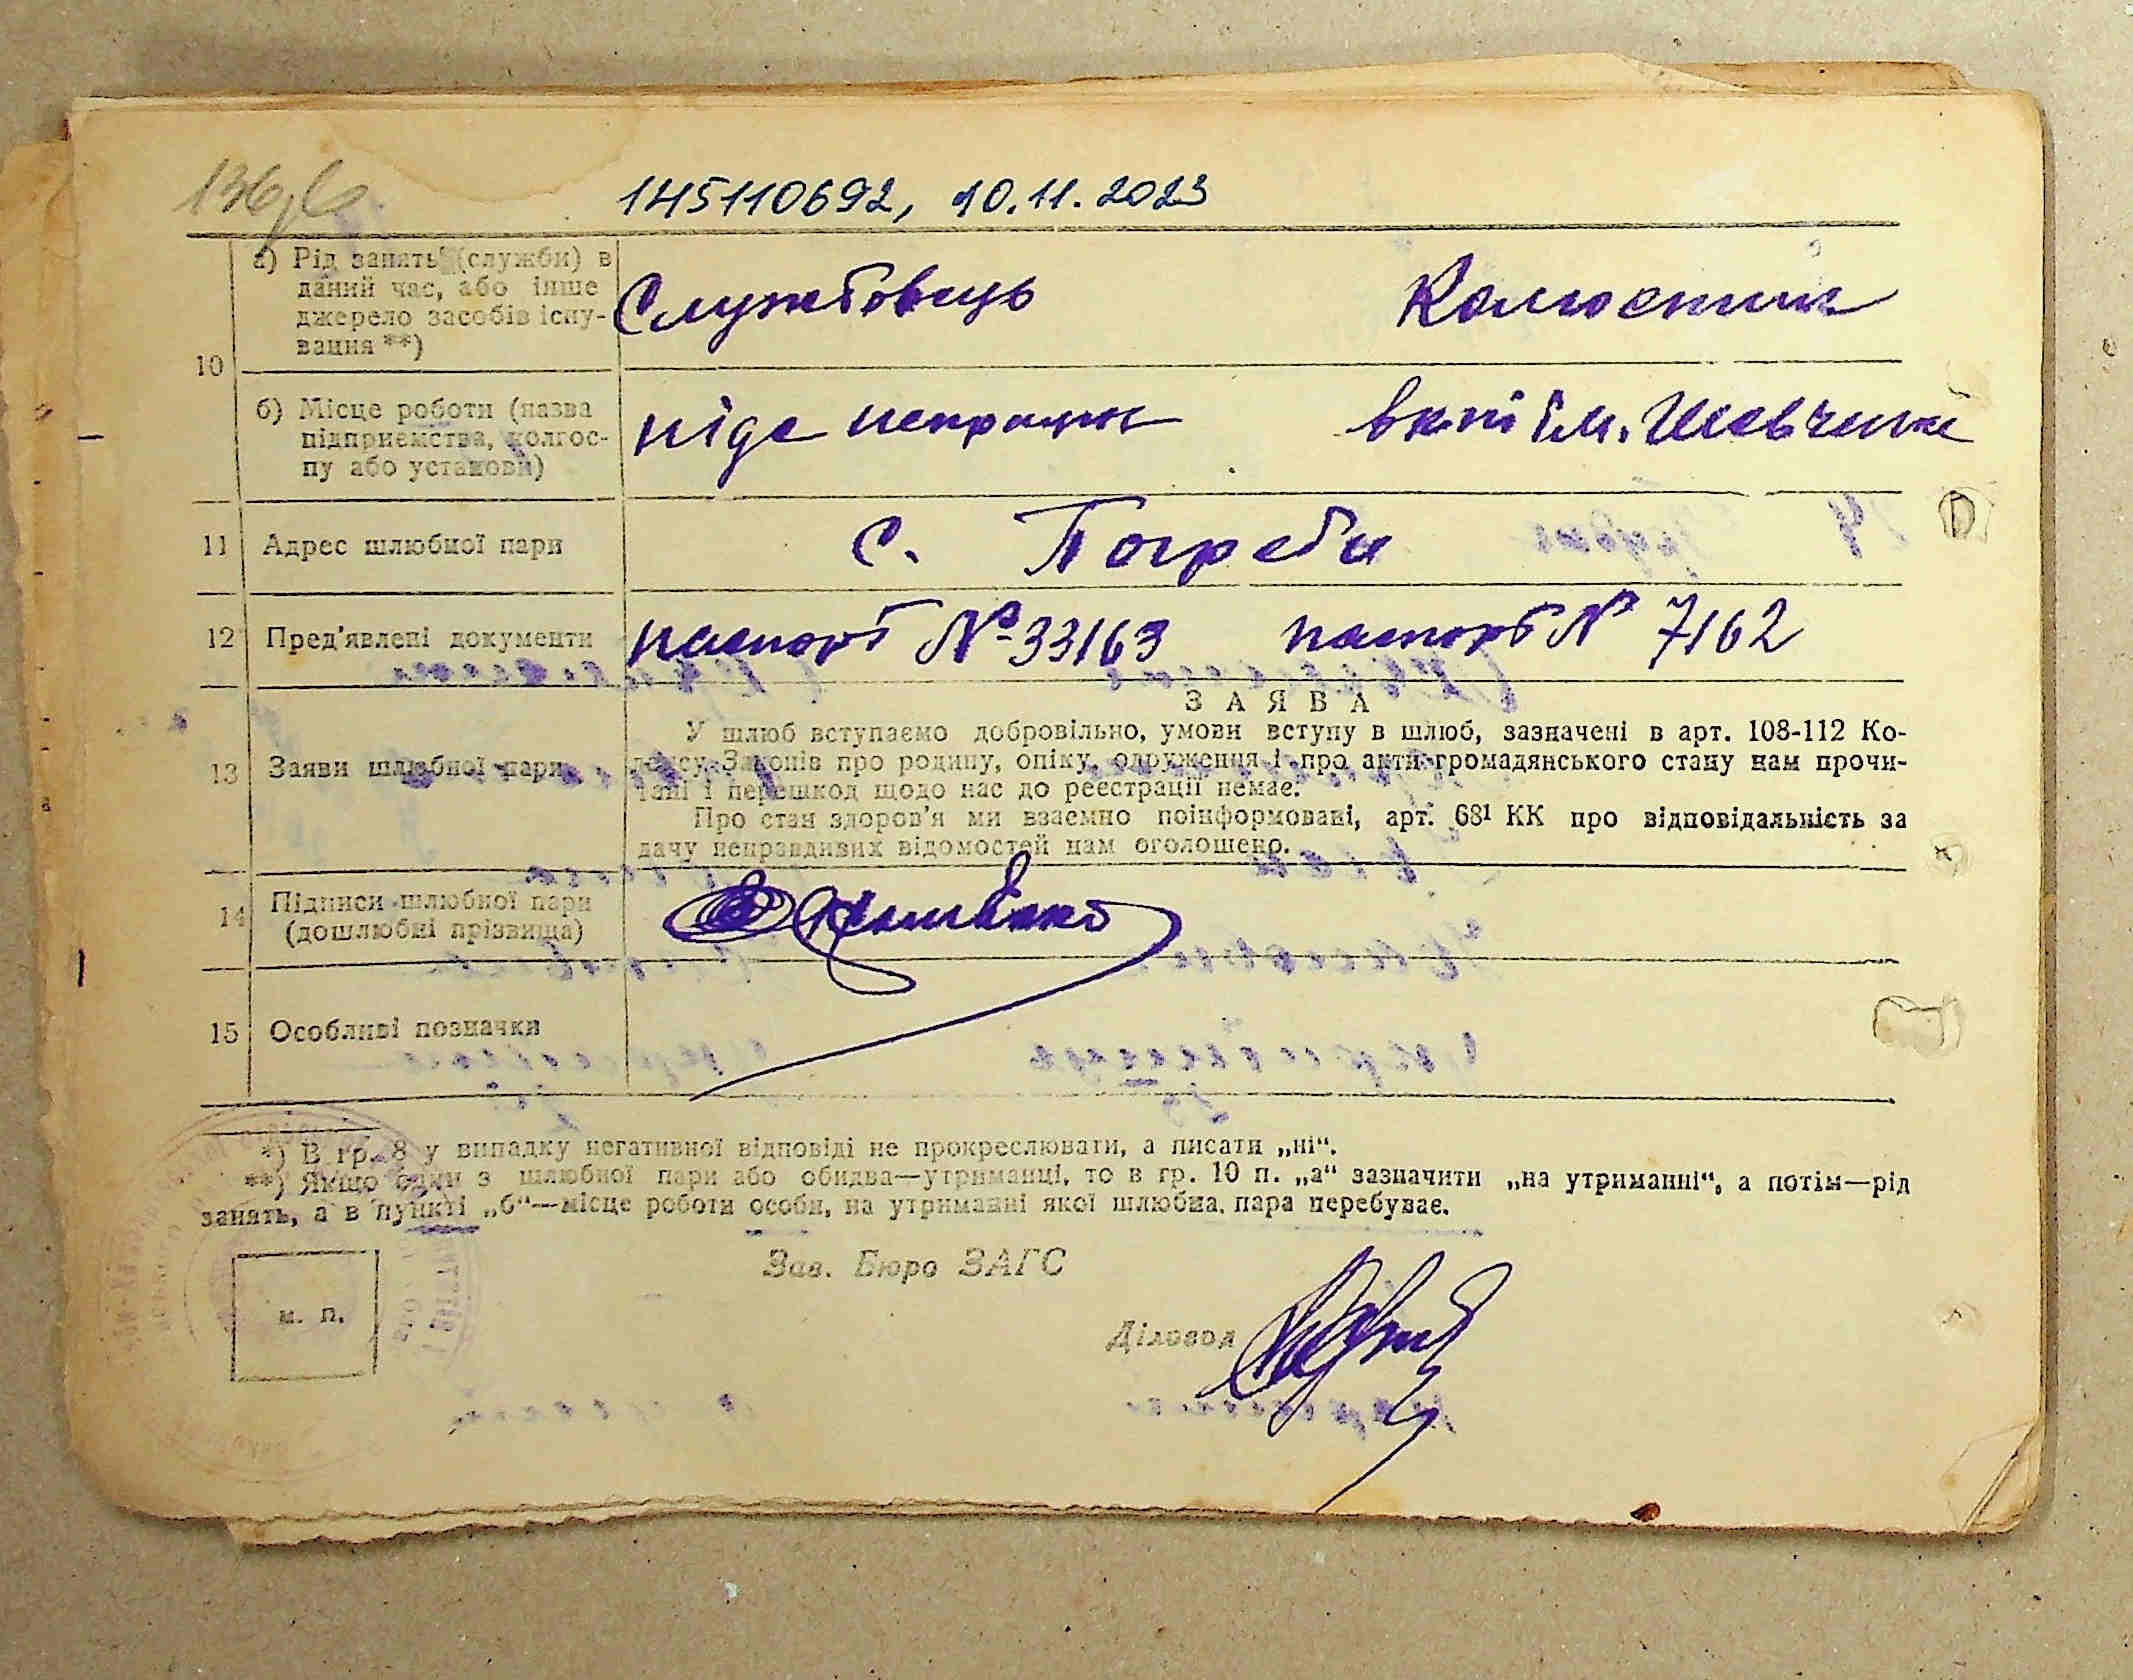 145110692, 10.11.2023
10
а) Рід занять (служби) в
даний час, або інше
джерело засобів існу-
вання **)
Службовець
Колгосник
б) Місце роботи (назва
підприємства, колгос-
пу або установи)
ніде непрацює
в к-пі ім. Шевченка
11 Адрес шлюбної пари
с. Погреби
12 Пред'явлені документи
паспорт № 33163 паспорт № 7162
13 Заяви шлюбної пари
ЗАЯВА
У шлюб вступаємо добровільно, умови вступу в шлюб, зазначені в арт. 108-112 Ко-
дексу Законів про родину, опіку, одруження і про акти громадянського стану нам прочи-
тані і перешкод щодо нас до реєстрації немає.
Про стан здоров'я ми взаємно поінформовані, арт. 68¹ КК про відповідальність за
дачу неправдивих відомостей нам оголошено.
14 Підписи шлюбної пари
(дошлюбні прізвища)
15 Особливі позначки
*) В гр. 8 у випадку негативної відповіді не прокреслювати, а писати „ні“.
**) Якщо один з шлюбної пари або обидва—утриманці, то в гр. 10 п. „а“ зазначити „на утриманні“, а потім—рід
занять, а в пункті „б“—місце роботи особи, на утриманні якої шлюбна пара перебуває.
Зав. Бюро ЗАГС
м. п.
Діловод